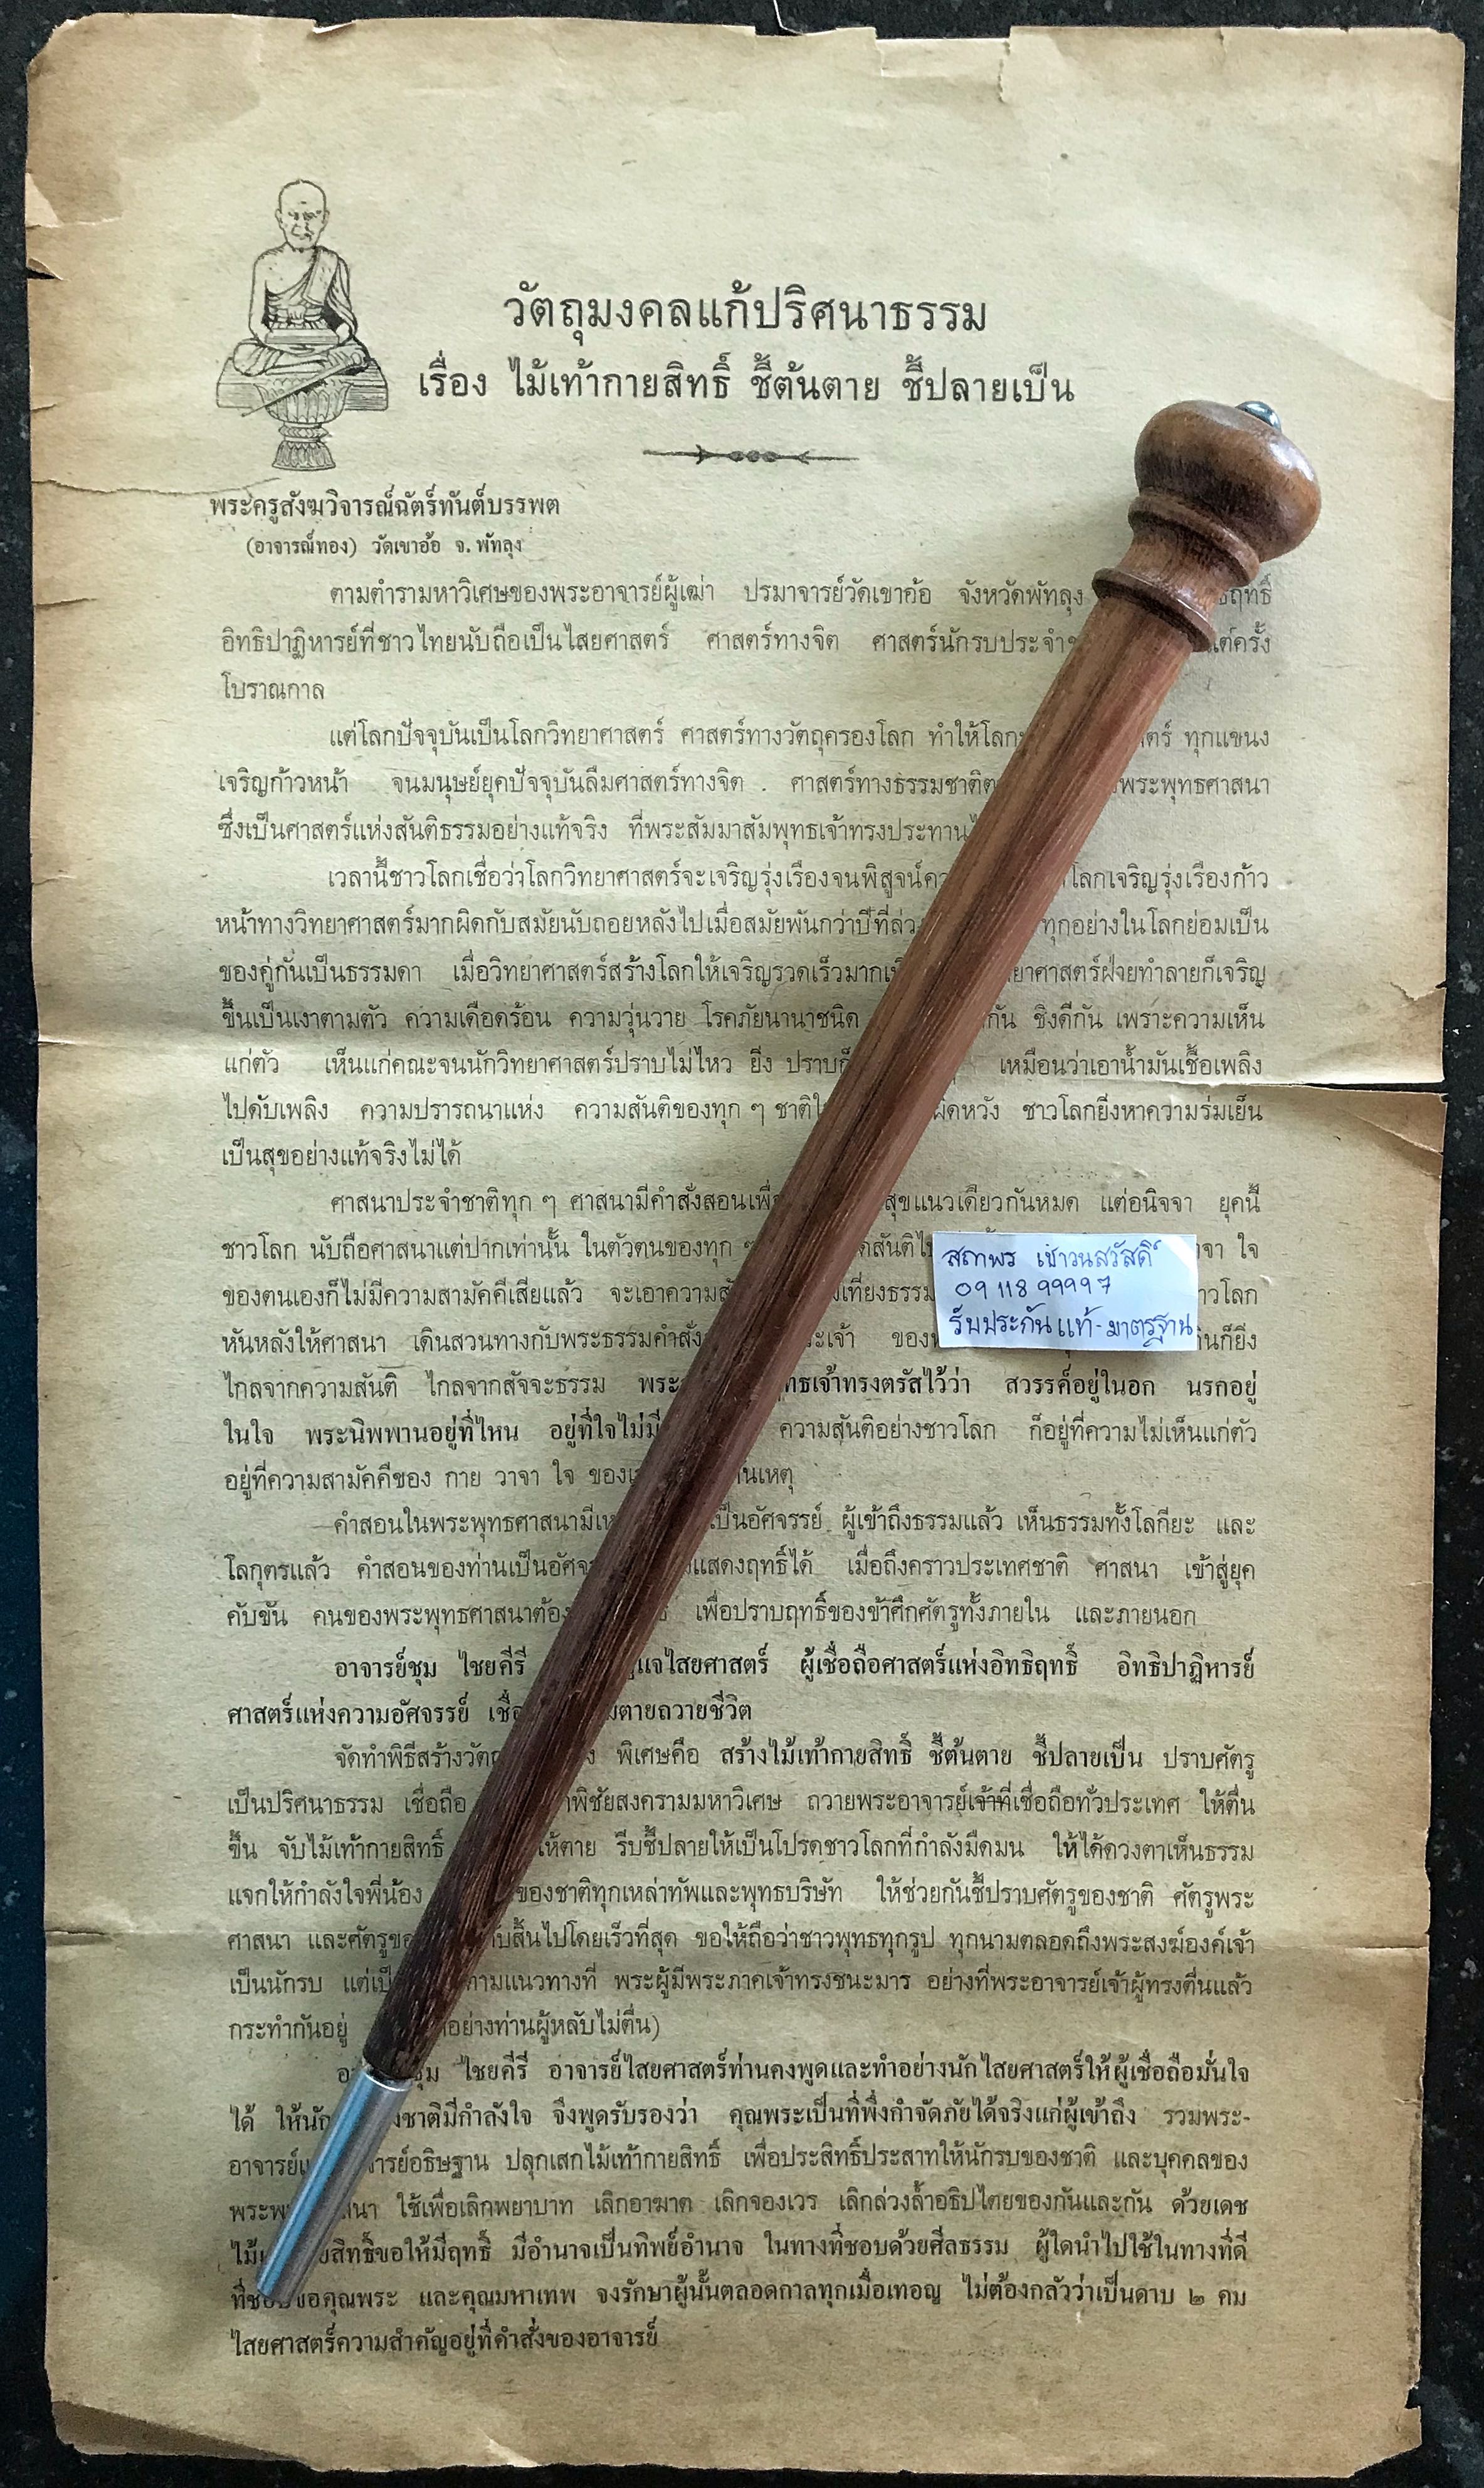 วัตถุมงคลแก้ปริศนาธรรม
เรื่อง ไม้เท้ากายสิทธิ์ ชี้ต้นตาย ชี้ปลายเป็น
พระครูสังฆวิจารณ์ฉัตร์ทันต์บรรพต
(อาจารณ์ทอง) วัดเขาอ้อ จ. พัทลุง
ตามตำรามหาวิเศษของพระอาจารย์ผู้เฒ่า ปรมาจารย์วัดเขาอ้อ จังหวัดพัทลุง
อิทธิปาฏิหารย์ที่ชาวไทยนับถือเป็นไสยศาสตร์ ศาสตร์ทางจิต ศาสตร์นักรบประจำ แต่ครั้ง
โบราณกาล
แต่โลกปัจจุบันเป็นโลกวิทยาศาสตร์ ศาสตร์ทางวัตถุครองโลก ทำให้โลก ทุกแขนง
เจริญก้าวหน้า จนมนุษย์ยุคปัจจุบันลืมศาสตร์ทางจิต . ศาสตร์ทางธรรมชาติ พระพุทธศาสนา
ซึ่งเป็นศาสตร์แห่งสันติธรรมอย่างแท้จริง ที่พระสัมมาสัมพุทธเจ้าทรงประทาน
เวลานี้ชาวโลกเชื่อว่าโลกวิทยาศาสตร์จะเจริญรุ่งเรืองจนพิสูจน์ โลกเจริญรุ่งเรืองก้าว
หน้าทางวิทยาศาสตร์มากผิดกับสมัยนับถอยหลังไปเมื่อสมัยพันกว่าปีที่ ทุกอย่างในโลกย่อมเป็น
ของคู่กันเป็นธรรมดา เมื่อวิทยาศาสตร์สร้างโลกให้เจริญรวดเร็วมาก ยาศาสตร์ฝ่ายทำลายก็เจริญ
ขึ้นเป็นเงาตามตัว ความเดือดร้อน ความวุ่นวาย โรคภัยนานาชนิด กัน ชิงดีกัน เพราะความเห็น
แก่ตัว เห็นแก่คณะจนนักวิทยาศาสตร์ปราบไม่ไหว ยิ่ง ปราบ เหมือนว่าเอาน้ำมันเชื้อเพลิง
ไปดับเพลิง ความปรารถนาแห่ง ความสันติของทุก ๆ ชาติ ผิดหวัง ชาวโลกยิ่งหาความร่มเย็น
เป็นสุขอย่างแท้จริงไม่ได้
ศาสนาประจำชาติทุก ๆ ศาสนามีคำสั่งสอนเพื่อ สุขแนวเดียวกันหมด แต่อนิจจา ยุคนี้
ชาวโลก นับถือศาสนาแต่ปากเท่านั้น ในตัวตนของทุก ๆ สันติ ใจ
ของตนเองก็ไม่มีความสามัคคีเสียแล้ว จะเอาความ เที่ยงธรรม าวโลก
หันหลังให้ศาสนา เดินสวนทางกับพระธรรมคำสั่ง ระเจ้า ก็ยิ่ง
ไกลจากความสันติ ไกลจากสัจจะธรรม พระ ทธเจ้าทรงตรัสไว้ว่า สวรรค์อยู่ในอก นรกอยู่
ในใจ พระนิพพานอยู่ที่ไหน อยู่ที่ใจไม่มี ความสันติอย่างชาวโลก ก็อยู่ที่ความไม่เห็นแก่ตัว
อยู่ที่ความสามัคคีของ กาย วาจา ใจ ของ นเหตุ
คำสอนในพระพุทธศาสนามี เป็นอัศจรรย์ ผู้เข้าถึงธรรมแล้ว เห็นธรรมทั้งโลกียะ และ
โลกุตรแล้ว คำสอนของท่านเป็น แสดงฤทธิ์ได้ เมื่อถึงคราวประเทศชาติ ศาสนา เข้าสู่ยุค
คับขัน คนของพระพุทธศาสนาต้อง เพื่อปราบฤทธิ์ของข้าศึกศัตรูทั้งภายใน และภายนอก
อาจารย์ชุม ไชยคีรี ไสยศาสตร์ ผู้เชื่อถือศาสตร์แห่งอิทธิฤทธิ์ อิทธิปาฏิหารย์
ศาสตร์แห่งความอัศจรรย์ ตายถวายชีวิต
จัดทำพิธีสร้าง พิเศษคือ สร้างไม้เท้ากายสิทธิ์ ชี้ต้นตาย ชี้ปลายเป็น ปราบศัตรู
เป็นปริศนาธรรม เชื่อถือ พิชัยสงครามมหาวิเศษ ถวายพระอาจารย์เจ้าที่เชื่อถือทั่วประเทศ ให้ตื่น
ขึ้น จับไม้เท้ากายสิทธิ์ ให้ตาย รีบชี้ปลายให้เป็นโปรดชาวโลกที่กำลังมืดมน ให้ได้ดวงตาเห็นธรรม
แจกให้กำลังใจพี่น้อง ของชาติทุกเหล่าทัพและพุทธบริษัท ให้ช่วยกันชี้ปราบศัตรูของชาติ ศัตรูพระ
ศาสนา และศัตรู สิ้นไปโดยเร็วที่สุด ขอให้ถือว่าชาวพุทธทุกรูป ทุกนามตลอดถึงพระสงฆ์องค์เจ้า
เป็นนักรบ ตามแนวทางที่ พระผู้มีพระภาคเจ้าทรงชนะมาร อย่างที่พระอาจารย์เจ้าผู้ทรงตื่นแล้ว
กระทำกันอยู่ อย่างท่านผู้หลับไม่ตื่น)
ชุม ไชยคีรี อาจารย์ไสยศาสตร์ท่านคงพูดและทำอย่างนักไสยศาสตร์ให้ผู้เชื่อถือมั่นใจ
ได้ ชาติมีกำลังใจ จึงพูดรับรองว่า คุณพระเป็นที่พึ่งกำจัดภัยได้จริงแก่ผู้เข้าถึง รวมพระ-
อาจารย์ อธิษฐาน ปลุกเสกไม้เท้ากายสิทธิ์ เพื่อประสิทธิ์ประสาทให้นักรบของชาติ และบุคคลของ
ใช้เพื่อเลิกพยาบาท เลิกอาฆาต เลิกจองเวร เลิกล่วงล้ำอธิปไตยของกันและกัน ด้วยเดช
สิทธิ์ขอให้มีฤทธิ์ มีอำนาจเป็นทิพย์อำนาจ ในทางที่ชอบด้วยศีลธรรม ผู้ใดนำไปใช้ในทางที่ดี
ขอคุณพระ และคุณมหาเทพ จงรักษาผู้นั้นตลอดกาลทุกเมื่อเทอญ ไม่ต้องกลัวว่าเป็นดาบ ๒ คม
ไสยศาสตร์ความสำคัญอยู่ที่คำสั่งของอาจารย์
สถาพร เชาวนสวัสดิ์
09 118 99997
รับประกันแท้-มาตรฐาน